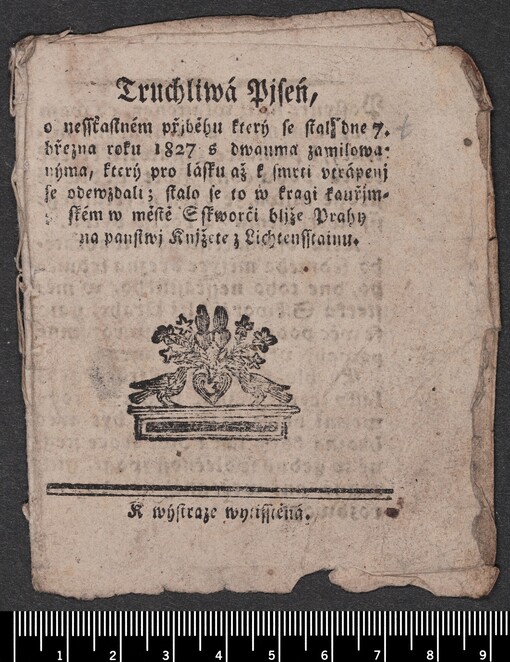 Truchliwá Pjseń,
o nesskastném přjběhu který se stal dne 7.
března roku 1827 s dwauma zamilowa-
nýma, který pro lásku až k smrti vtrápenj
se odewzdali; stalo se to w kragi kauřjm-
ském w městě Skworči bljže Prahy
na panstwj Knjžete z Lichtensstainu.
K weystraze wytisstěná.
1 2 3 4 5 6 7 8 9